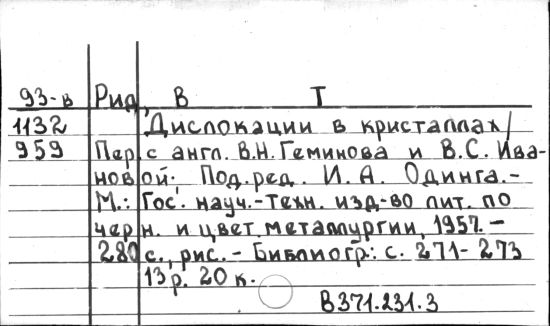 93-в Рид, В Т
1132 Дислокации в кристаллах/
959 Пер. с англ. В.Н. Геминова и В.С. Ива-
новой. Под. ред. И. А. Одинга.-
М.: Гос. науч.-техн. изд-во лит. по
черн. и цвет. металлургии, 1957.-
280 с., рис. - Библиогр: с. 271-273
13 р. 20 к.
В371.231.3